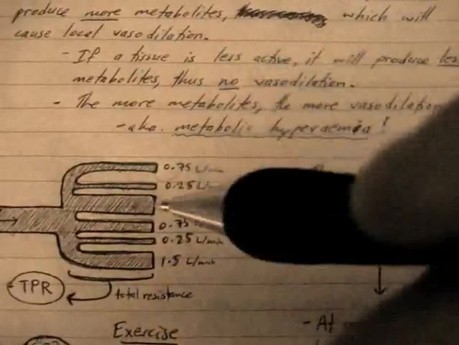 produce more metabolites, which will
cause local vasodilation.
- If a tissue is less active, it will produce less
metabolites, thus no vasodilation.
- The more metabolites, the more vasodilation
- aka. metabolic hyperaemia!
0.75 L/min
0.25 L/min
0.75
0.25 L/min
1.5 L/min
TPR
total resistance
Exercise
- At